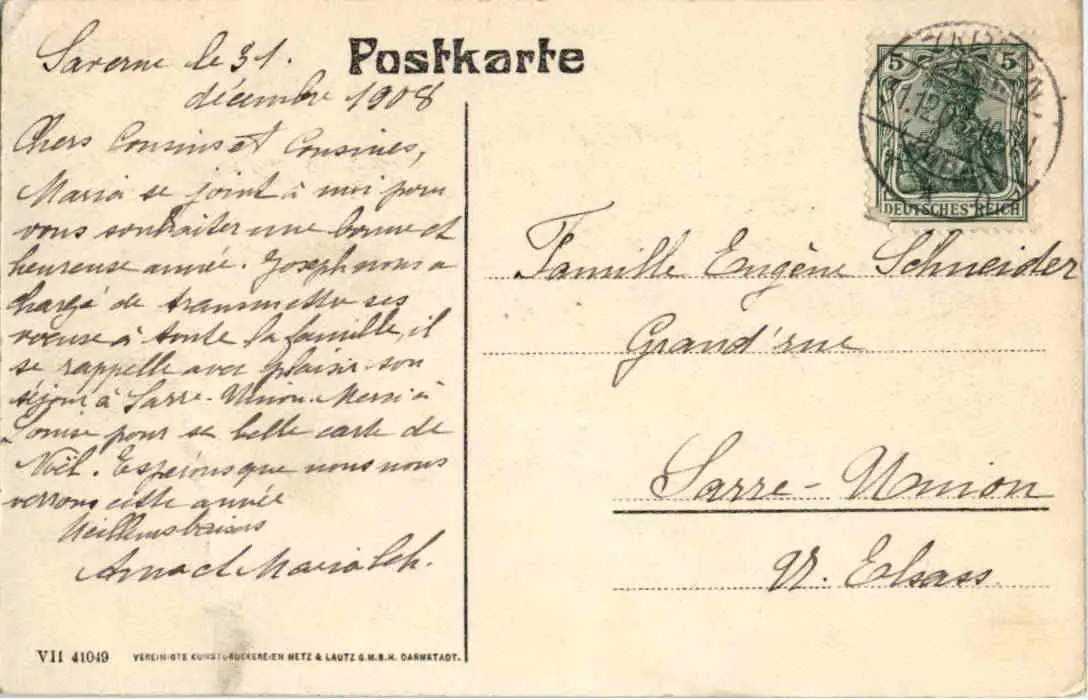 Postkarte
Saverne le 31.
décembre 1908
Chers Cousins et Cousines,
Maria se joint à moi pour
vous souhaiter une bonne et
heureuse année. Joseph nous a
chargé de transmettre ses
voeux à toute la famille, il
se rappelle avec plaisir son
séjour à Sarre-Union. Merci à
Louise pour sa belle carte de
Noël. Espérons que nous nous
verrons cette année
Meilleurs baisers
Anna et Maria Sch.
5 5
DEUTSCHES REICH
Famille Eugène Schneider
Grand'rue
Sarre-Union
U. Elsass
VII 41049 VEREINIGTE KUNSTDRUCKEREIEN METZ & LAUTZ G.M.B.H. DARMSTADT.